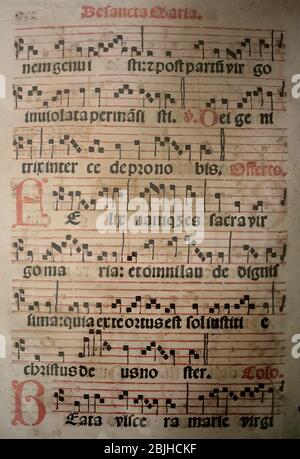 De sancta Maria.
nem genui sti: z post partū vir go
inuiolata permāsi sti. v. Dei ge ni
trix inter ce de pro no bis. Offerto.
F E lix nanqz es sacra vir
go ma ria: et omni lau de dignis
sima: quia ex te ortus est sol iustiti e
christus de us no ster. Cōio.
B Eata visce ra marie virgi
alamy
Image ID: 2BJHCKF
www.alamy.com